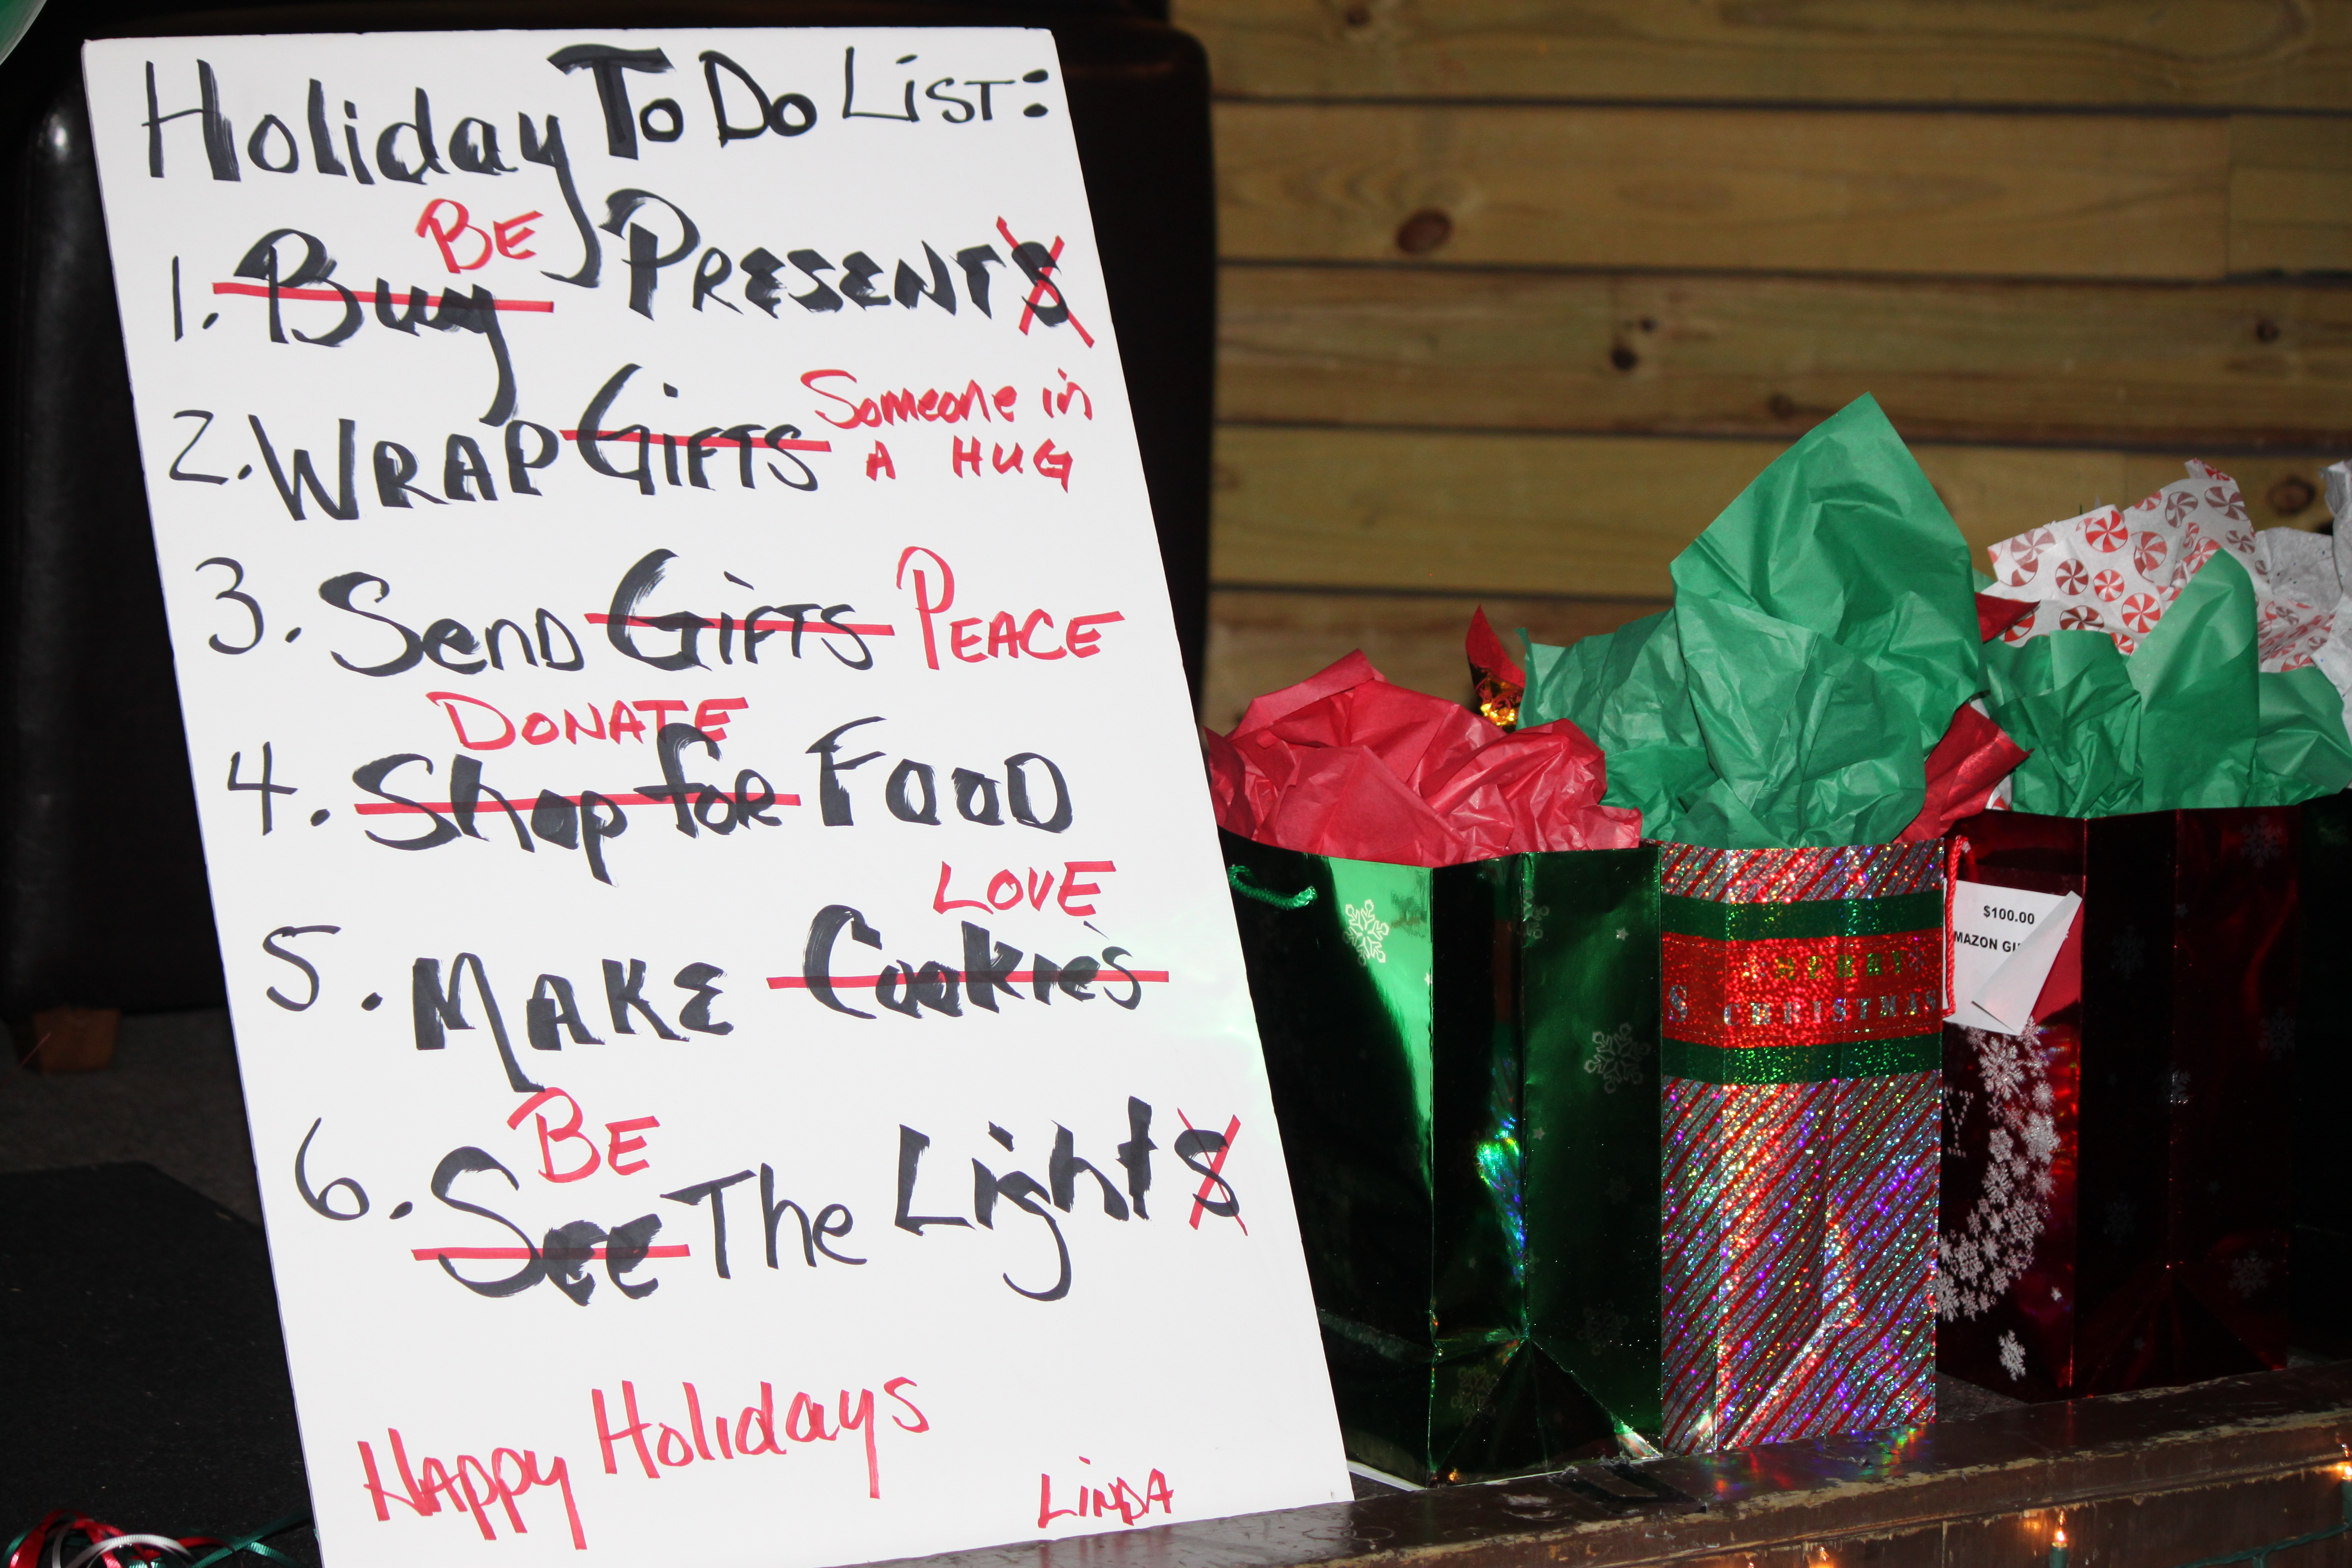 Holiday To Do List:
BE
1. Buy PRESENTS
2. WRAP GIFTS Someone in
A HUG
3. Send GIFTS PEACE
DONATE
4. Shop for Food
LOVE
5. MAKE Cookies
BE
6. See The Lights
Happy Holidays
LINDA
$100.00
MAZON GI
MERRY
CHRISTMAS